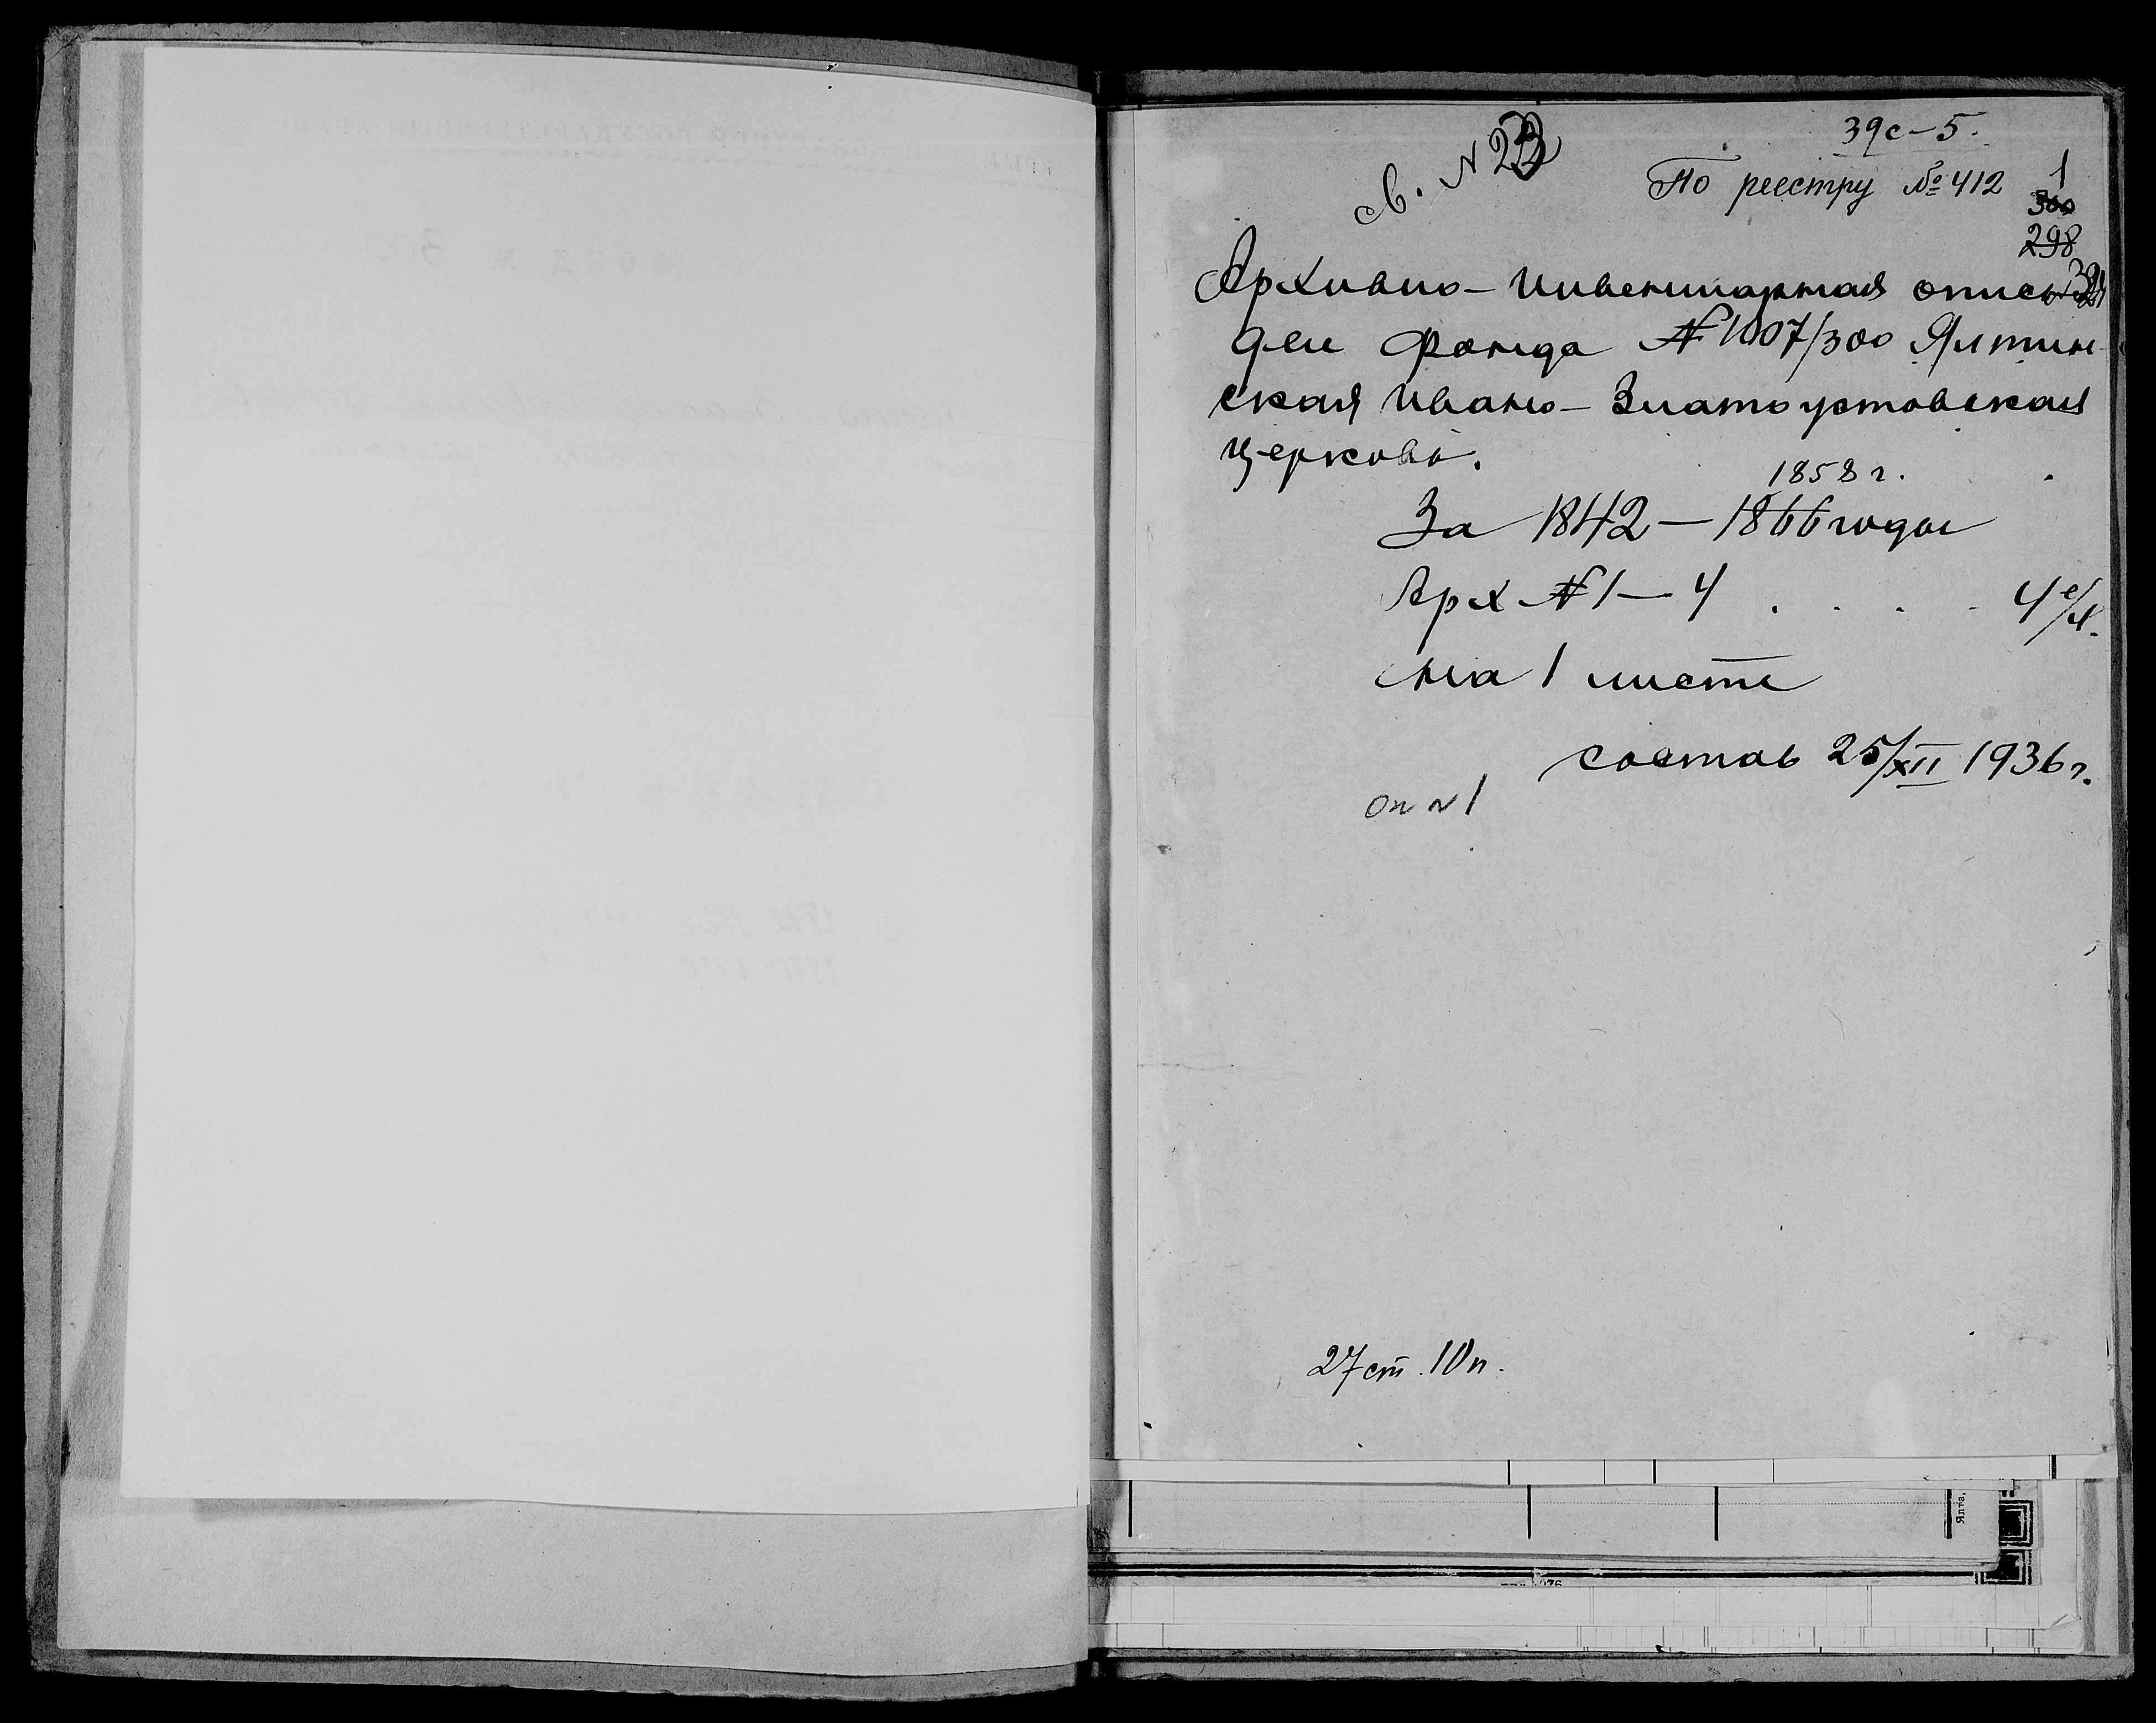 39с-5.
св. N 23
По реестру № 412
1
300
298
Архивно-Инвентарная опись
дел Фонда №1007/300 Ялтин-
ская Ивано-Златоустовская
церковь.
1858 г.
За 1842-1866 годы
Арх №1-4 . . . . 4 е/х.
на 1 листе
состав 25/XII 1936 г.
оп N1
27 ст. 10 п.
Ялта,